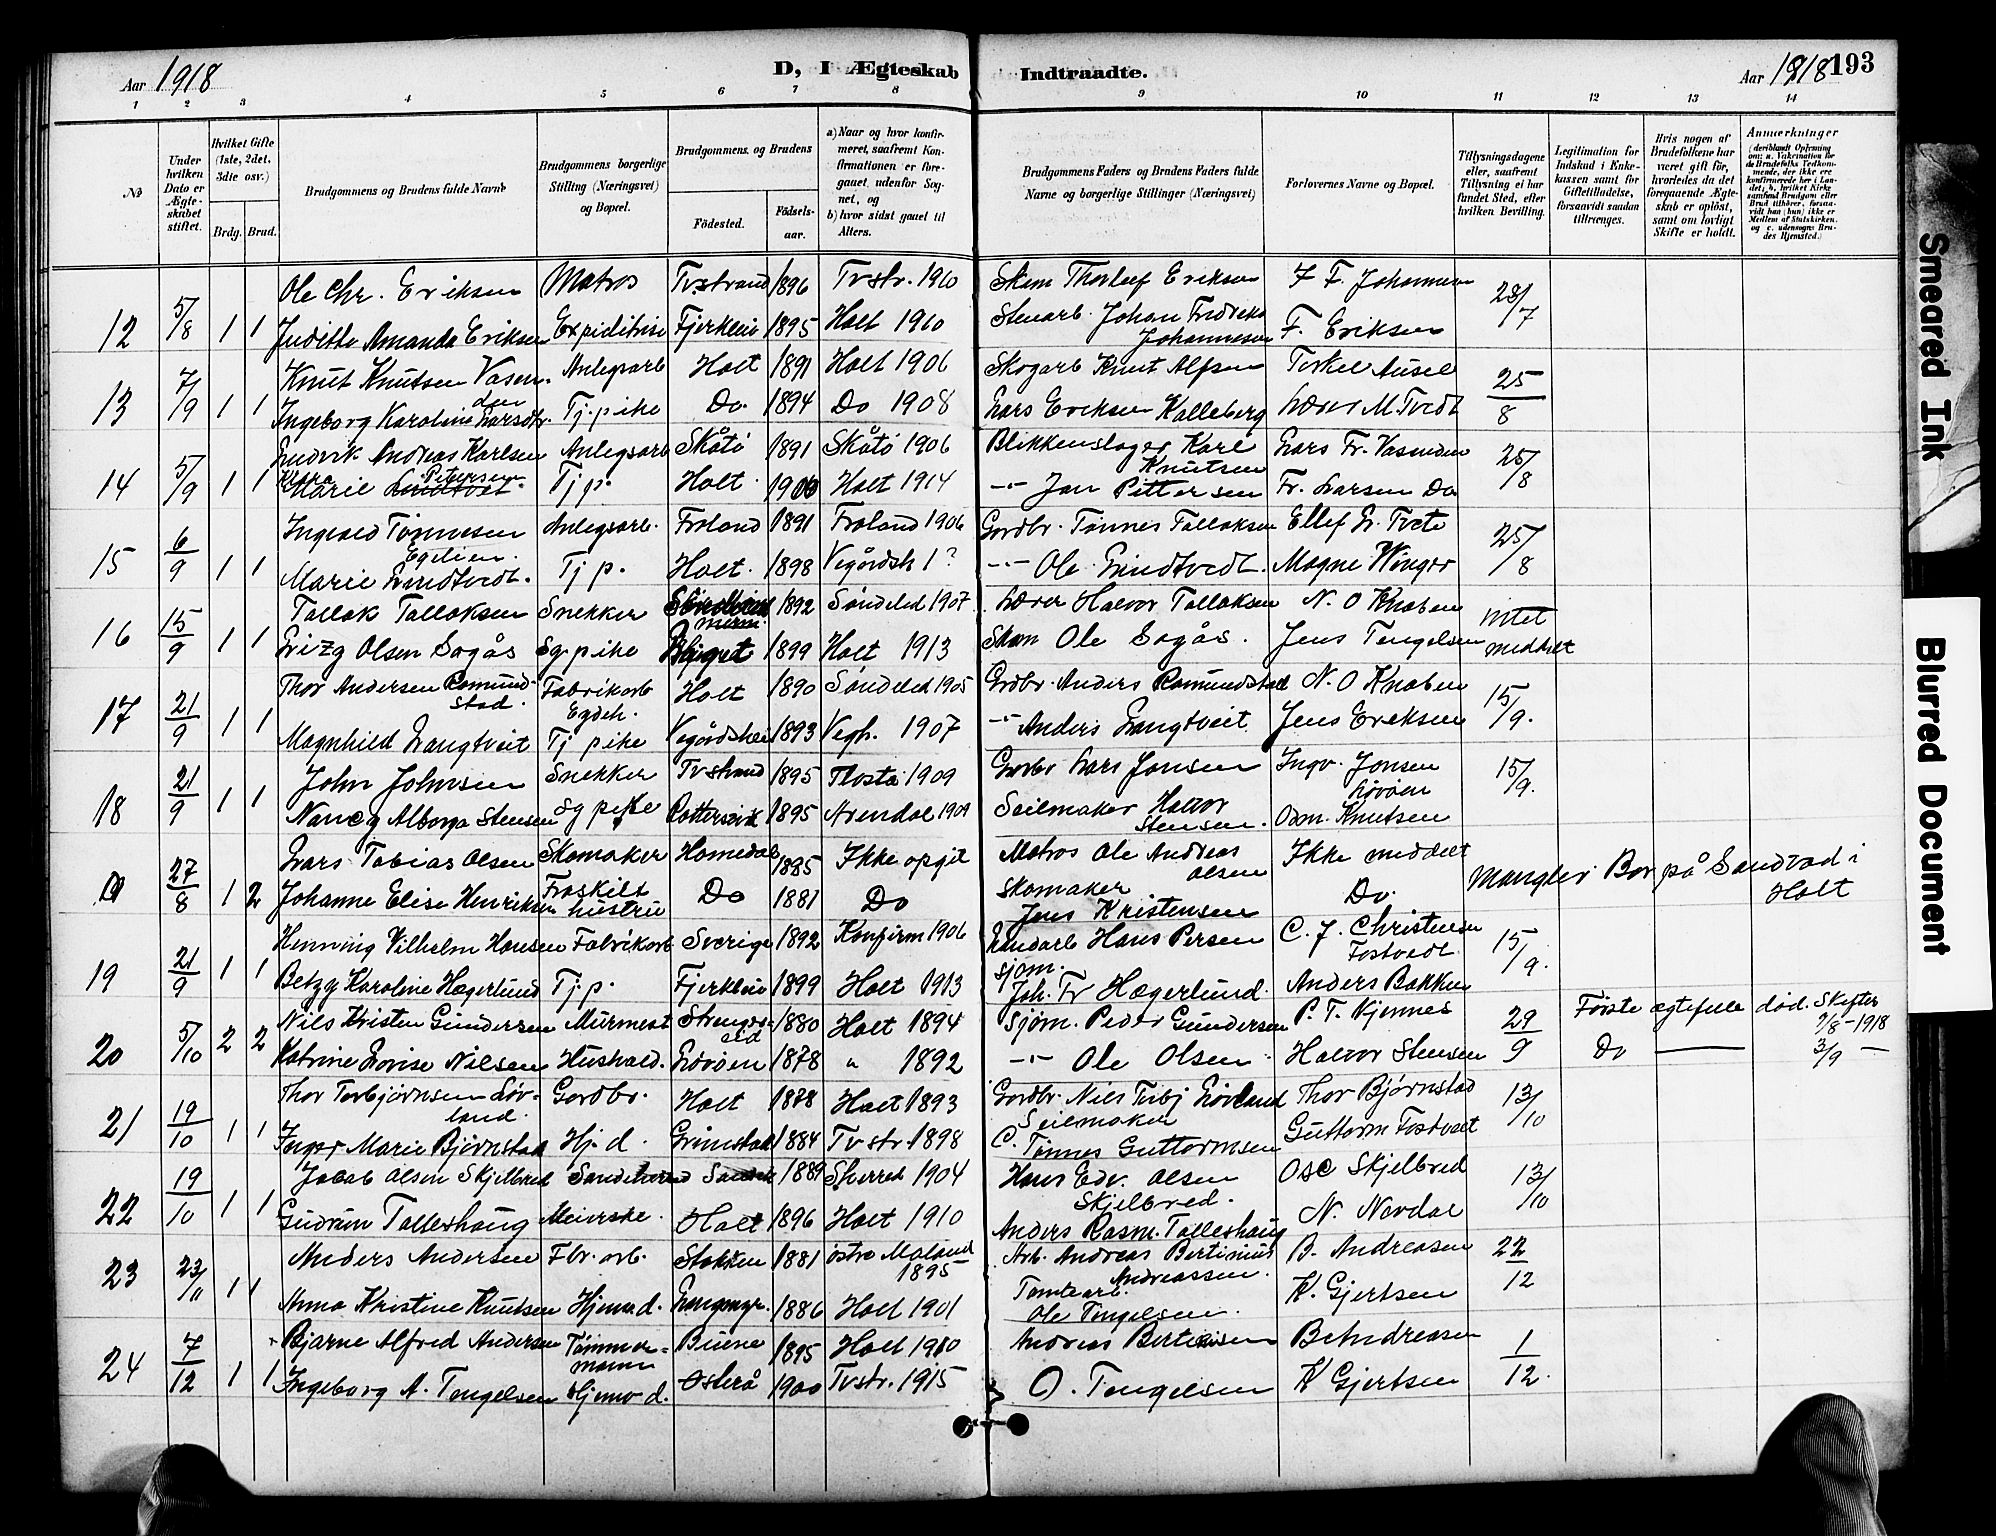 Aar 1918
D, I Ægteskab Indtraadte.
Aar 1918 193
1 2 3 4 5 6 7 8 9 10 11 12 13 14
№
Under hvilken Dato er Ægteskabet stiftet.
Hvilket Gifte (1ste, 2det, 3die osv.)
Brdg. Brud.
Brudgommens og Brudens fulde Navne
Brudgommens borgerlige Stilling (Næringsvei) og Bopæl.
Brudgommens og Brudens
Födested. Födselsaar.
a) Naar og hvor konfirmeret, saafremt Konfirmationen er foregaaet udenfor Sognet, og b) hvor sidst gaaet til Alters.
Brudgommens Faders og Brudens Faders fulde Navne og borgerlige Stillinger (Næringsvei)
Forlovernes Navne og Bopæl.
Tillysningsdagene eller, saafremt Tillysning ei har fundet Sted, efter hvilken Bevilling.
Legitimation for Indskud i Enkekassen samt for Giftetilladelse, forsaavidt saadan tiltrænges.
Hvis nogen af Brudefolkene har været gift för, hvorledes da det foregaaende Ægteskab er oplöst, samt om lovligt Skifte er holdt.
Anmerkninger
Ole Chr. Eriksen Matros Tvstrand 1896 Tvstr. 1910 Skom Thorleif Eriksen F. Johannesen
12 5/8 1 1 Judithe Amanda Eriksen Fjerkleiv 1895 Holt 1910 Stenarb. Johan Fredrik Johannesen F. Eriksen 28/7
Knut Knutsen Vasenden Anlegsarb Holt 1891 Holt 1906 Skogarb Knut Alfsen
13 7/9 1 1 Ingeborg Karoline Larsdtr. Tj. pike Do. 1894 Do 1908 Lars Eriksen Kalleberg Lærer M. Tvedt 25/8
Ludvik Andreas Karlsen Anlegsarb Skåtö 1891 Skåtö 1906 Blikkenslager Karl Knutsen Lars Fr. Vasenden
14 5/9 1 1 Marie Petersen Tj p. Holt 1900 Holt 1914 -"- Jan Pittersen Fr. Larsen Do 25/8
Ingvald Tønnesen Egelien Anlegsarb. Froland 1891 Froland 1906 Gordbr. Tønnes Tallaksen Ellef L. Tvete
15 6/9 1 1 Marie Lindtvedt. Tj p. Holt. 1898 Vegårdsh 1? -"- Ole Lindtvedt. Magne Winger 25/8
Tallak Tallaksen Snekker 1892 Søndeled 1907 Lærer Halvor Tallaksen N. O Knaben
16 15/9 1 1 Lizzy Olsen Sagås Sy. pike 1899 Holt 1913 Skom Ole Sagås. Jens Tengelsen intet meddelt
Thor Andersen Romundstad. Fabrikarb Egdeh. Holt 1890 Søndeled 1905 Grdbr. Anders Romundstad N. O Knaben
17 21/9 1 1 Magnhild Langtveit Tj pike Vegårdshei 1893 Vegh. 1907 -"- Anders Langtveit Jens Eriksen 15/9.
John Johnsen Snekker Tvstrand 1895 Flosta 1909 Grdbr Lars Jonsen Ingv. Jonsen
18 21/9 1 1 Nancy Alborga Stensen Sy pike 1895 Arendal 1909 Seilmaker Halvor Stensen. Osm. Knutsen 15/9.
Lars Tobias Olsen Skomaker Homedal 1885 Ikke opgit Matros Ole Andreas Olsen Ikke meddelt
27/8 1 2 Johanne Elise Henriksen Fraskilt hustru Do 1881 Do Skomaker Jens Kristensen Do. Mangler Bor på Sandvad i Holt
Henning Vilhelm Hansen Fabrikarb Sverige 1892 Konfirm 1906 Landarb Hans Persen C. J. Christensen Fostvedt
19 21/9 1 1 Betzy Karoline Hægerlund Tj. p. Fjerkleiv 1899 Holt 1913 Sjøm. Joh. Fr Hægerlund. Anders Bakken 15/9.
Nils Kristen Gundersen Murmest 1880 Holt 1894 Sjøm. Peder Gundersen P. T. Kjennes
20 5/10 2 2 Katrine Lovise Nilsen Hushold. Lövöen 1878 " 1892 -"- Ole Olsen Halvor Stensen 29/9 Første ægtefelle død. Skifter 7/8-1918 Do 3/9 -
Thor Torbjørnsen Lövland. Gordbr. Holt 1878 Holt 1893 Gordbr. Nils Torbj Lövland Thor Bjørnstad
21 19/10 1 1 Inger Marie Bjørnstad Hj. d. Grimstad 1884 Tvstr. 1898 Seilmaker C. Tønnes Guttormsen Guttorm Fostveit 13/10
Jakob Olsen Skjelbred Sandeherred 1889 Sherred 1904 Hans Edv. Olsen Skjelbred. Osc Skjelbred
22 19/10 1 1 Gudrun Talleshaug Meierske. Holt 1896 Holt 1910 Anders Rasm. Talleshaug N. Nordal 13/10
Anders Andersen Fbr. arb. Stokken 1881 østre Moland 1895 Arb. Andreas Bertinius Andreassen. B. Andreasen
23 23/11 1 1 Anna Kristine Knutsen Hjemmed. 1886 Holt 1901 Tomtearb. Ole Tengelsen. K. Gjertsen 22/12
Bjarne Alfred Andersen Tømmermann Buene 1895 Holt 1910 Andreas Bertinsen B Andreasen
24 7/12 1 1 Ingeborg A. Tengelsen Hjemmed. Osterå 1900 Tvstr. 1915 O. Tengelsen K Gjertsen 1/12.
Smeared Ink
Blurred Document